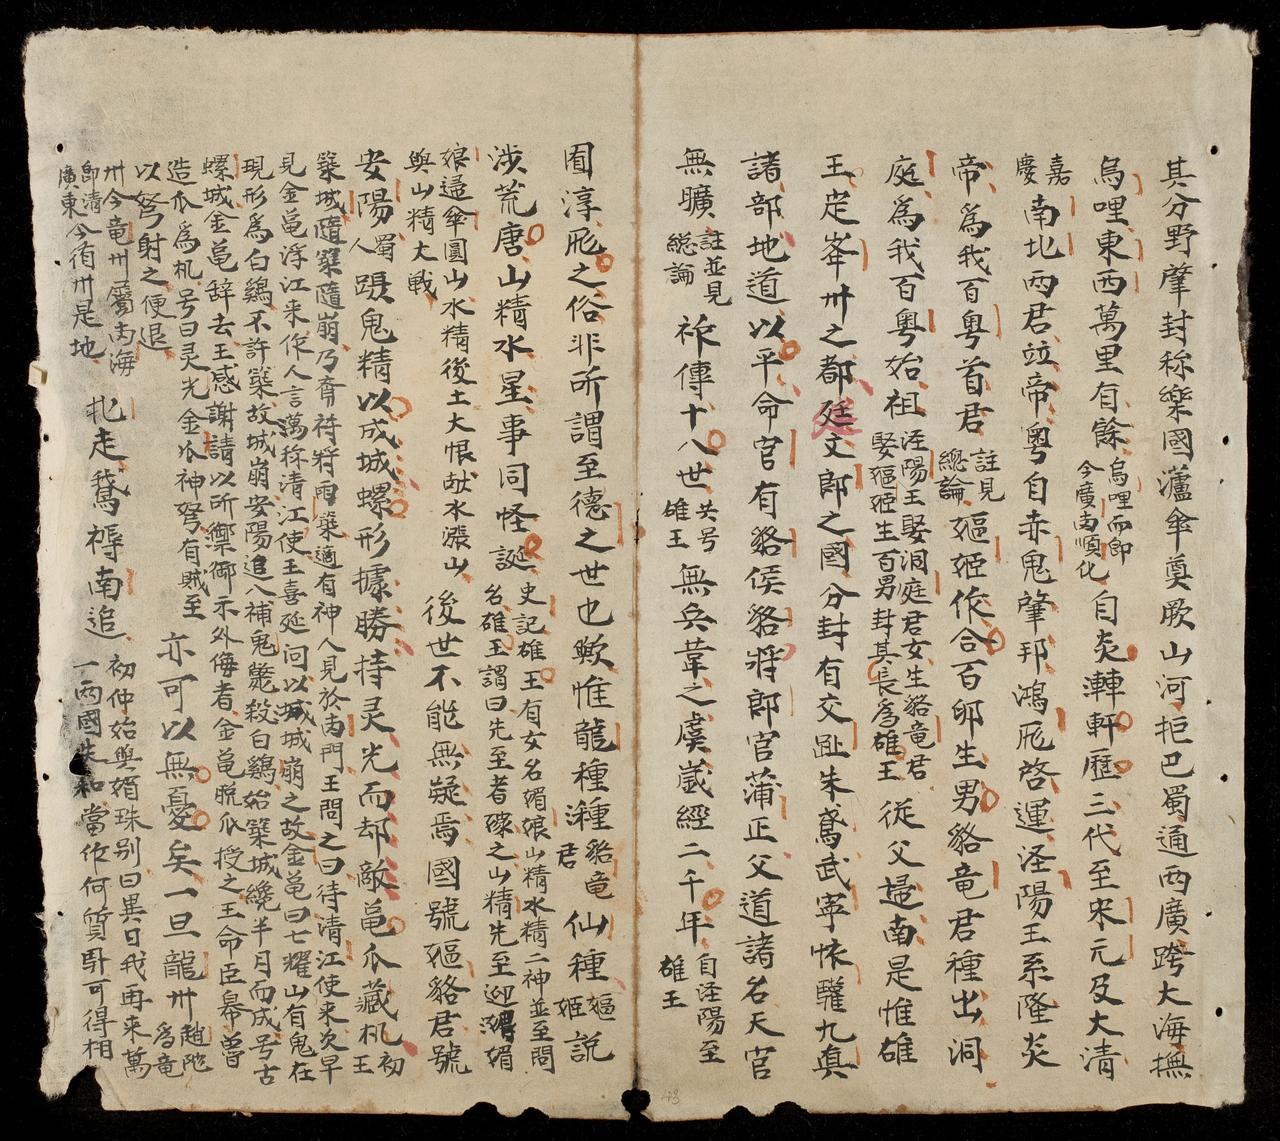 其分野肇封称樂國瀘傘奠厥山河拒巴蜀通西廣跨大海撫
烏哩東西萬里有餘烏哩而即今廣南順化自炎漸軒歷三代至宋元及大清
嘉慶南北兩君竝帝粵自赤鬼肇邦鴻厖啓運涇陽王系隆炎
帝爲我百粵首君註見總論嫗姬作合百卵生男貉竜君種出洞
庭爲我百粵始祖涇陽王娶洞庭君女生貉竜君娶嫗姬生百男封其長爲雄王從父歸南是惟雄
王定峯州之都廷文郎之國分封有交趾朱鳶武寧懷驩九真
諸部地道以平命官有貉侯貉將郎官蒲正父道諸名天官
無曠註並見總論祚傳十八世共号雄王無兵革之虞歲經二千年自涇陽至雄王
囿淳厖之俗非所謂至德之世也歟惟龍種種貉竜君仙種嫗姬説
涉荒唐山精水星事同怪誕史記雄王有女名媚娘山精水精二神並至問名雄王謂曰先至者嫁之山精先至迎媚
娘逼傘圓山水精後土大恨敁水漲山與山精大戰後世不能無疑焉國號嫗貉君號
安陽蜀人躡鬼精以成城螺形據勝持灵光而却敵黽爪藏机初王
築城隨築隨崩乃齋符將雨築適有神人見於南門王問之曰待清江使來次早
見金黽浮江来作人言萬称清江使王喜延问以城城崩之故金黽曰七耀山有鬼在
現形爲白鷄不許築故城崩安陽追入補鬼斃殺白鷄始築城纔半月而成号古
螺城金黽辞去王感謝請以所禦御示外侮者金黽脫爪授之王命臣皋魯
造爪爲机号曰灵光金爪神弩有賊至以弩射之便退亦可以無憂矣一旦龍州趙陀爲竜
州今竜州屬南海即清廣東今有州是地北走鵝褥南追初仲始與媚珠别曰異日我再来萬一兩國失和當作何質馯可得相